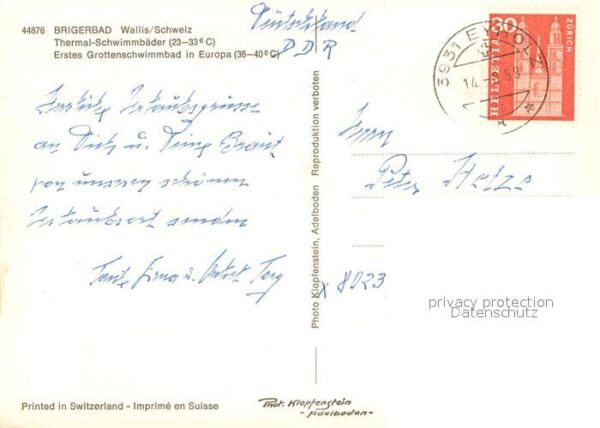 44876 BRIGERBAD Wallis/Schweiz
Thermal-Schwimmbäder (23-33° C)
Erstes Grottenschwimmbad in Europa (36-40° C)
Deutschland
DDR
3931 EYHOLZ
14.
30
HELVETIA
ZÜRICH
Herzliche Urlaubsgrüsse
an Dich u. Deine Braut
von unserem schönen
Urlaubsort senden
Tante Erna u.
Herrn
Peter
x 8023
Photo Klopfenstein, Adelboden Reproduktion verboten
privacy protection
Datenschutz
Printed in Switzerland - Imprimé en Suisse
Phot. Klopfenstein
- Adelboden -